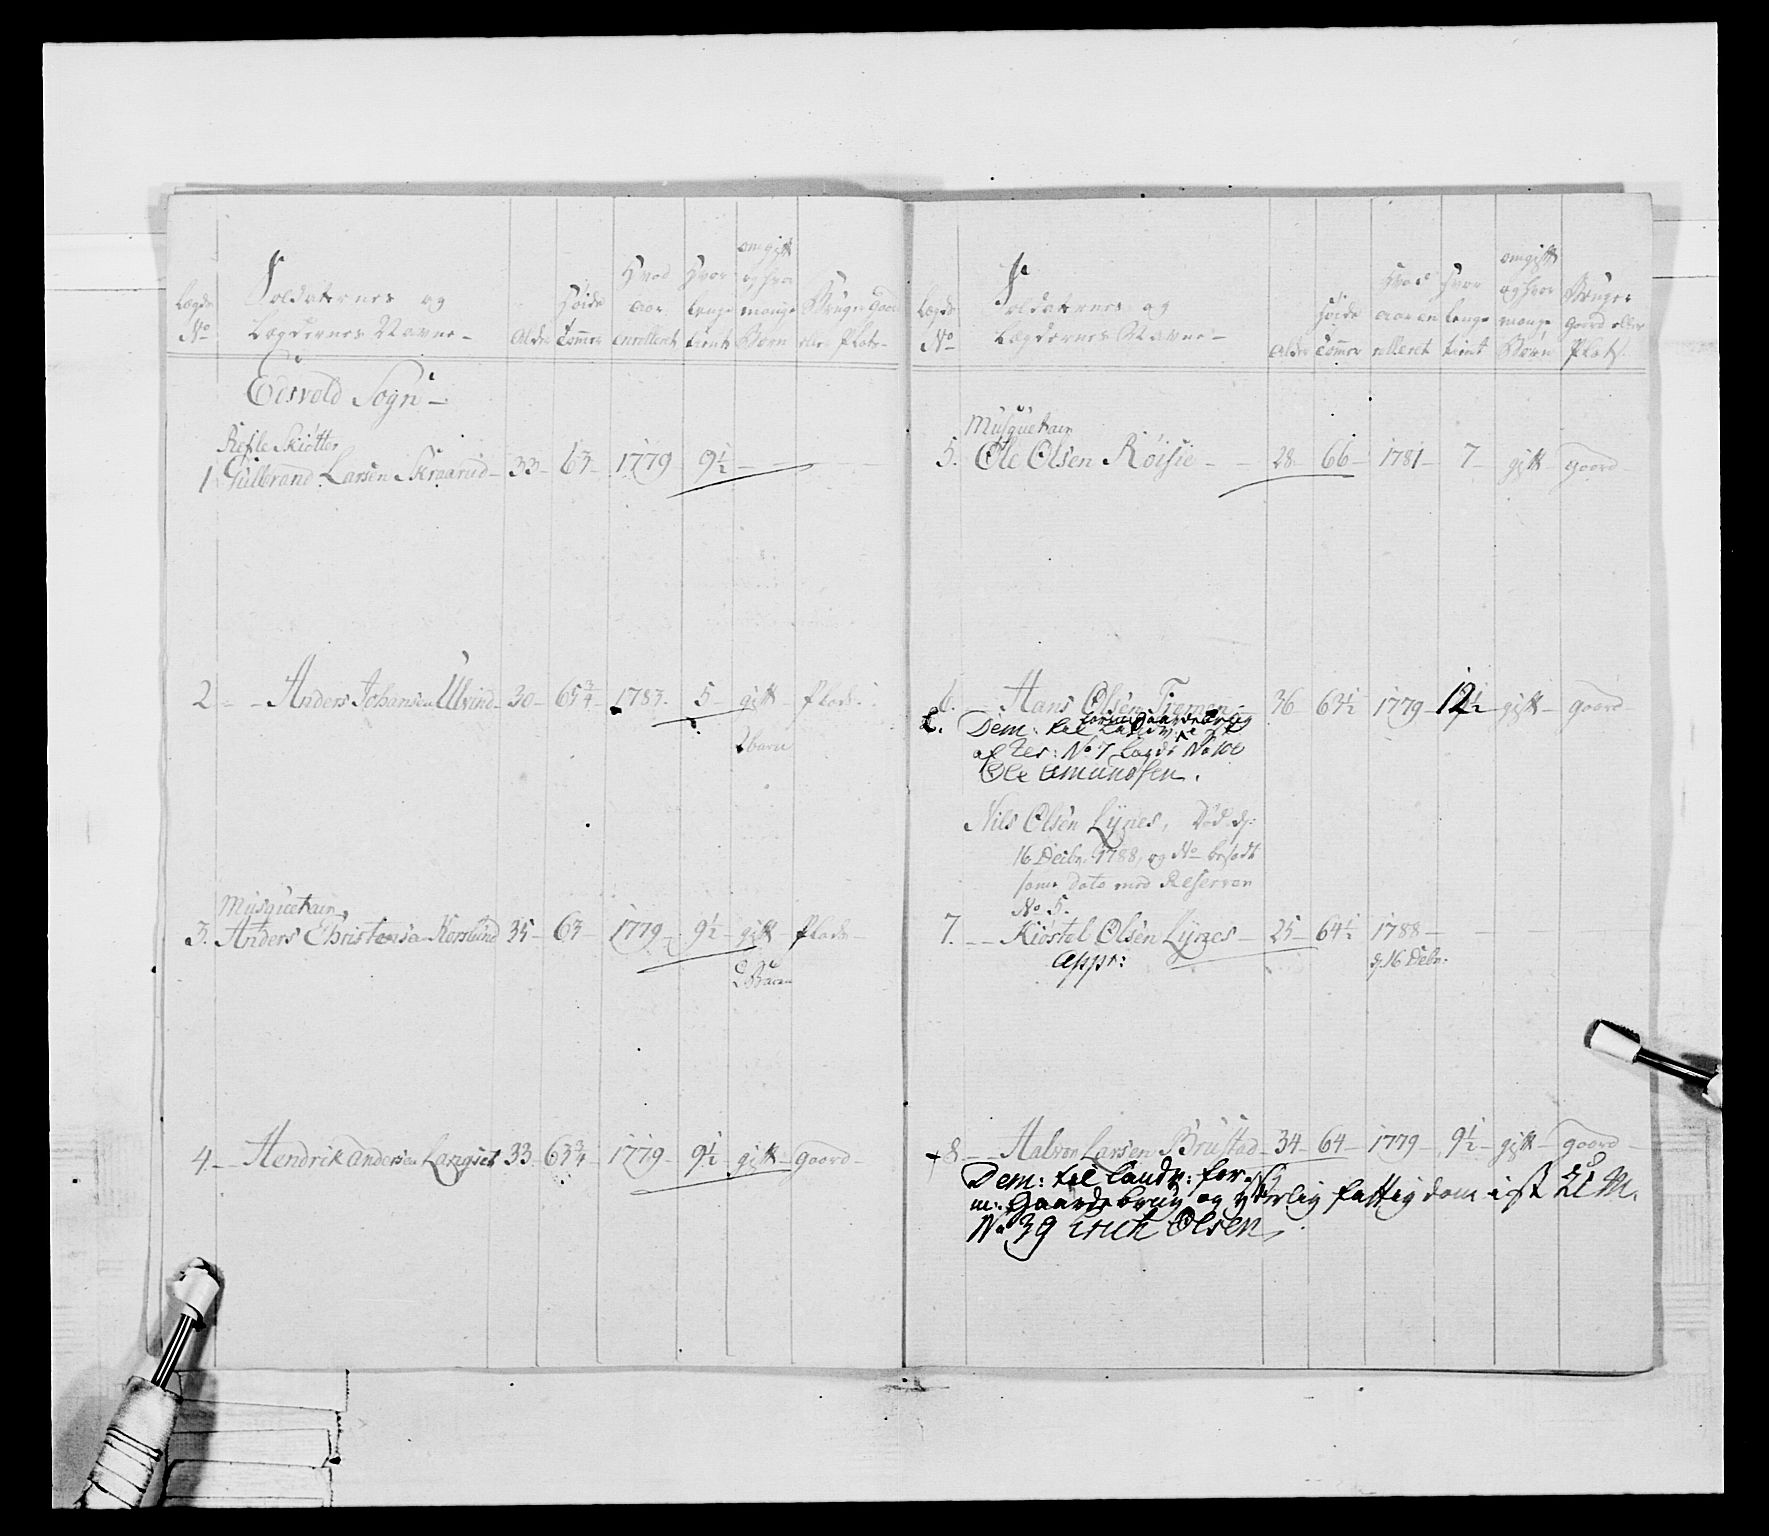 Lægds No
Soldaternes og Lægdernes Navne
Alder
Høide Tommer
Hvad aar enrolleret
Hvor lenge tient
om gift og hvor mange Børn
Bruger Gaard eller Plads
Eisvold Sogn
Refle Skiøtter
1 Gulbrand Larsen Skraarud 33 63 1779 9½
2 Anders Johansen Ulvind 30 65¾ 1783 5 gift Plads
2 børn
Musqueterer
3. Anders Christensen 35 63 1779 9½ gift Plads
2 Børn
4 Hendrik Andersen Langset 33 63¾ 1779 9½ gift Gaard
Lægds No
Soldaternes og Lægdernes Navne
Alder
Høide Tommer
Hvad aar enrolleret
Hvor lenge tient
om gift og hvor mange Børn
Bruger Gaard eller Plads
Musqueterer
5. Ole Olsen Röisie 28 66 1781 7 gift Gaard
6. Hans Olsen 36 63½ 1779 12½ gift Gaard
Dem: til
No 7 Lægd No 101
Ole Amundsen.
Nils Olsen Lynes, død d:
16 Decbr. 1788, og No besadt
samme Dato med Reserven
No 5.
7. Kiöstel Olsen Lynes 25 64½ 1788
Appr: d. 16 Debr.
+ 8 Halvor Larsen Brustad 34 64 1779 9½ gift Gaard
Dem: til Landv: for
m: Gaardebrug og yderlig fattigdom igst
No 39 Erich Olsen